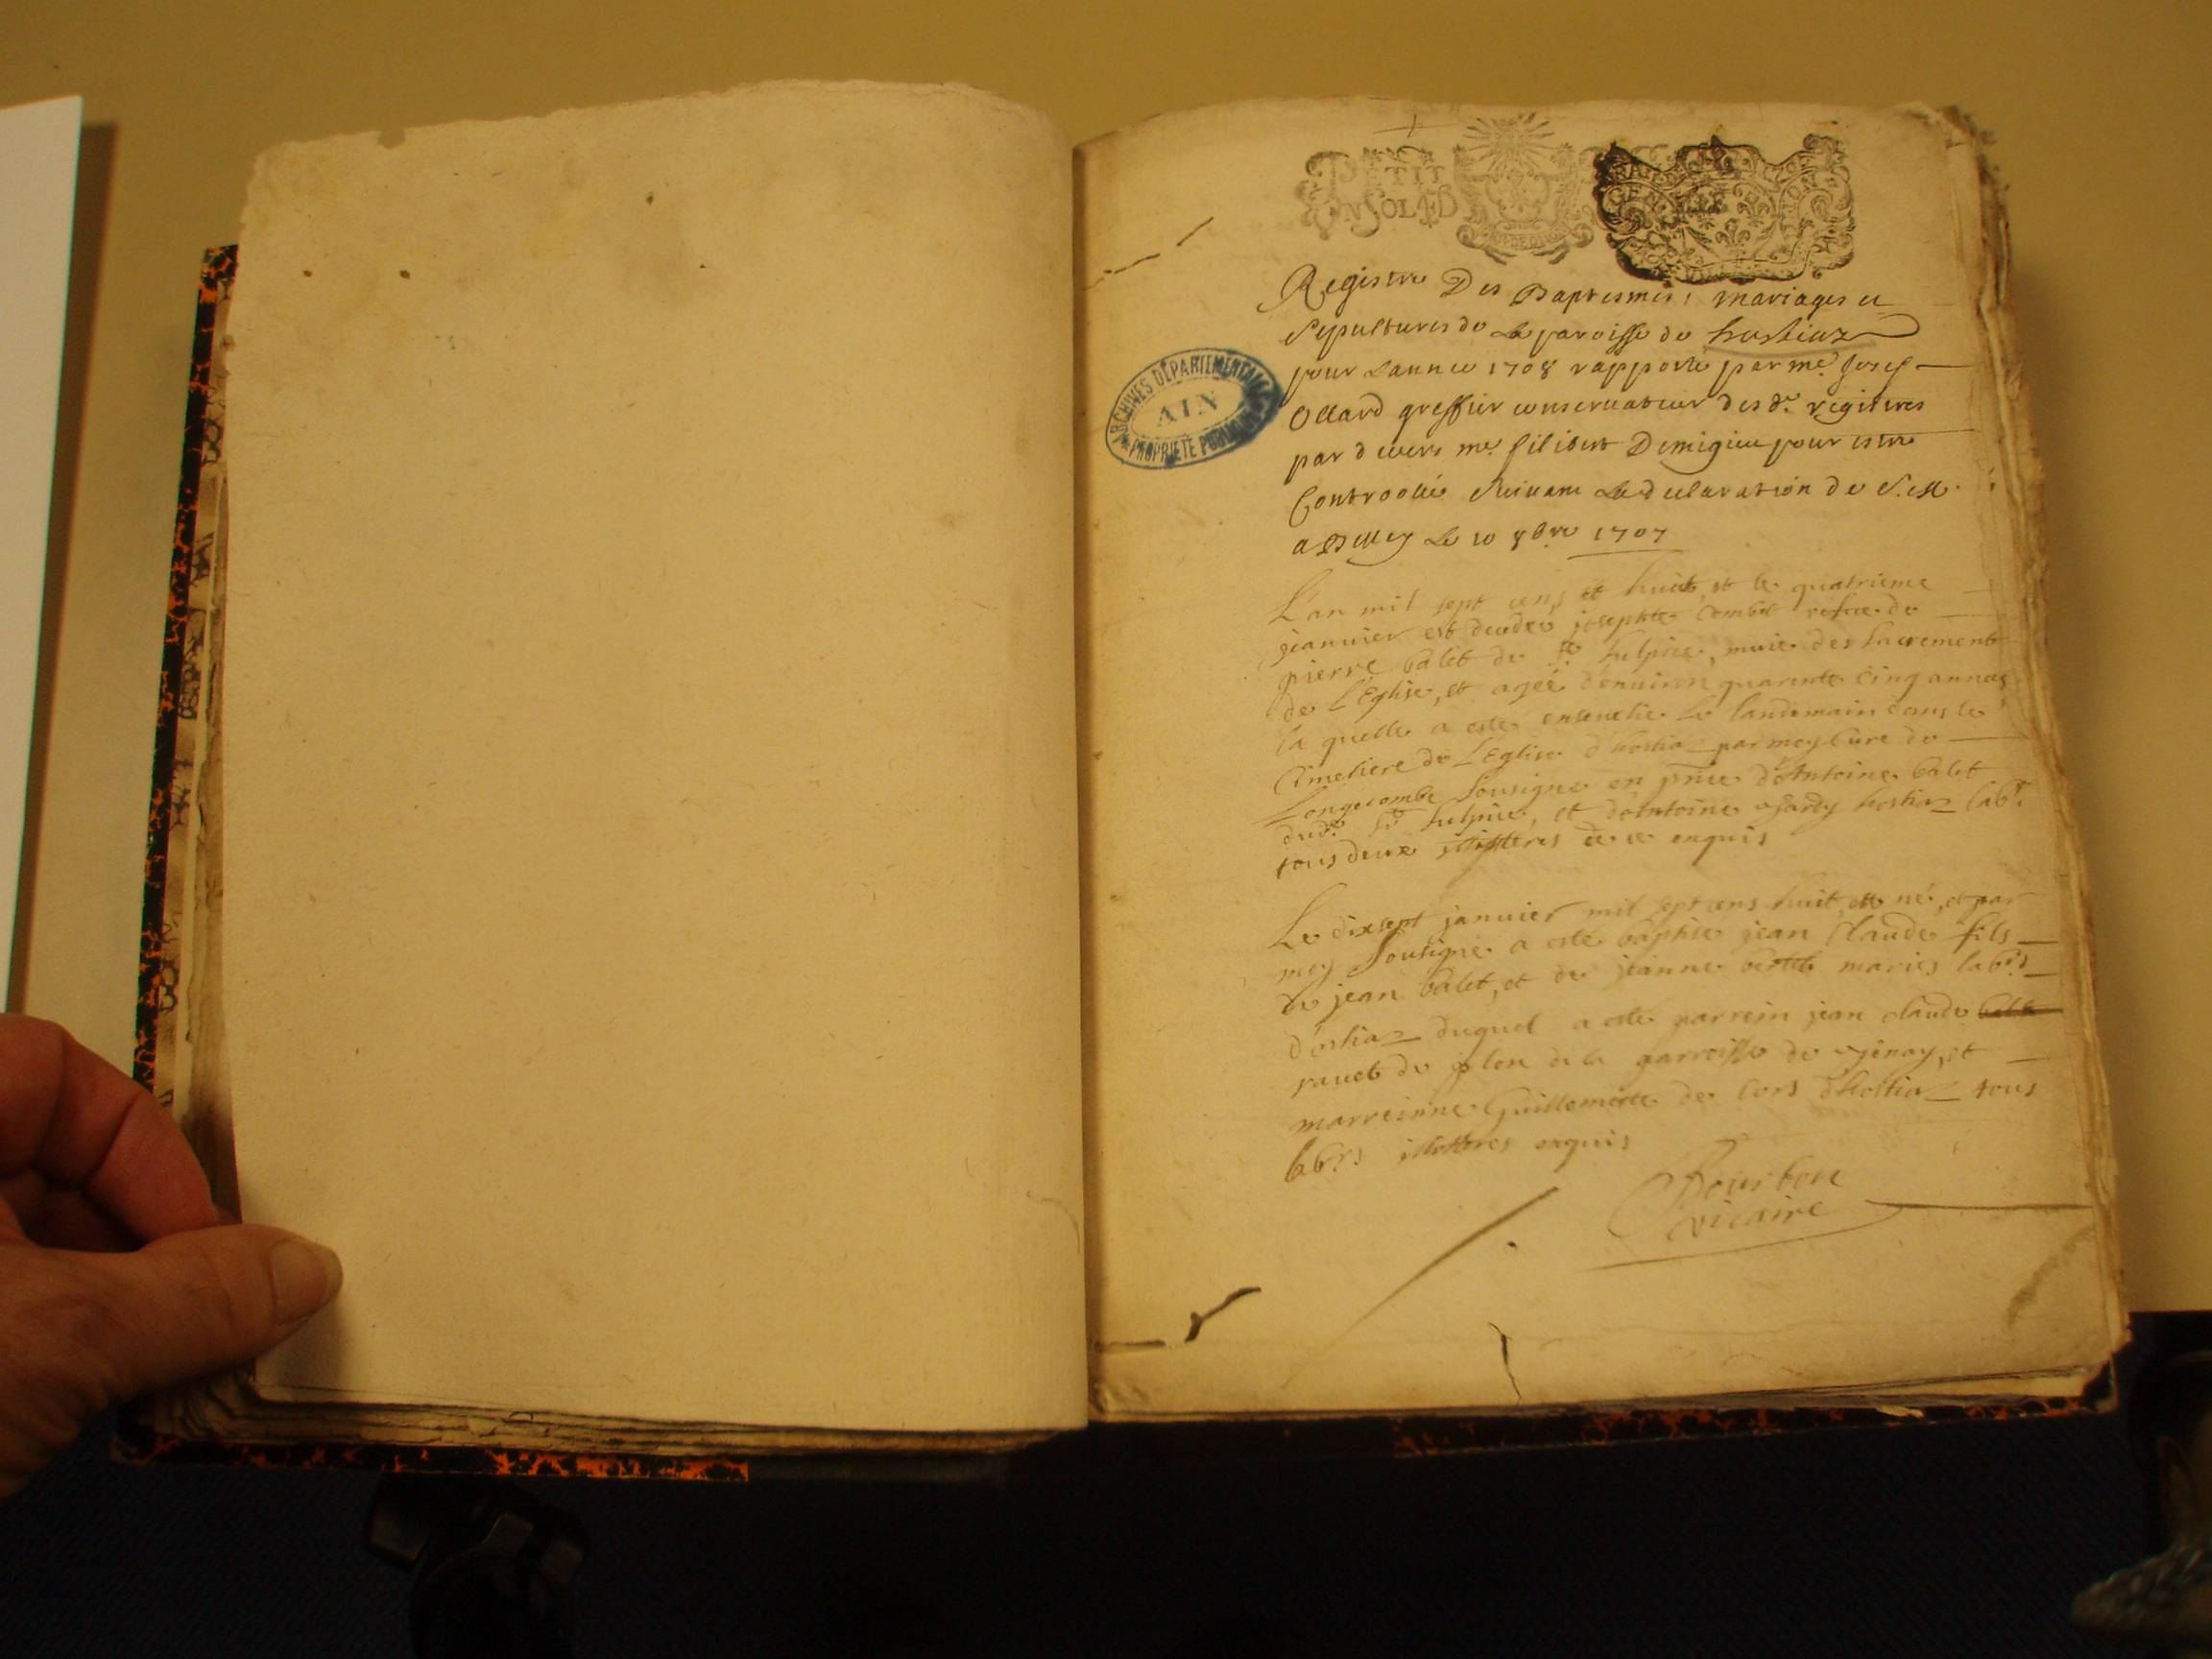 PETIT
UN SOL 4 D
GEN
ARCHIVES DÉPARTEMENTALES
AIN
PROPRIÉTÉ PUBLIQUE
Registre Des Baptesmes, mariages et
Sepultures de La paroisse de hostiaz
pour Lannee 1708 rapporte par me Josep
Ollard greffier conservateur des dts registres
par devers me filibert Demigieu pour estre
Controollé Suivant La declaration de S. M.
a Belley Le 10 8bre 1707
L'an mil sept cens et huit, et le quatrieme
jeanvier est decedee josephte Combet de
pierre balet de st Sulpice, munie des Sacrements
de L'Eglise, et agée d'environ quarente cinq annees
la quelle a esté ensevelie le landemain dans le
Cimetiere de L'Eglise d'hostiaz par moy Curé de
Longecombe Sousigné en pnce d'Antoine balet
dudt st Sulpice, et d'Antoine hostiaz labr
tous deux illitteres de ce enquis
Le dixsept janvier mil sept cens huit, est né, et par
moy Sousigné a esté baptisé jean Claude fils
de jean balet, et de jeanne mariés labrs
d'ostiaz duquel a esté parrein jean claude
ravet de plon de la parroisse de et
marreinne Guillemette de lors d'hostiaz tous
labrs illitteres enquis
Bourbon
vicaire